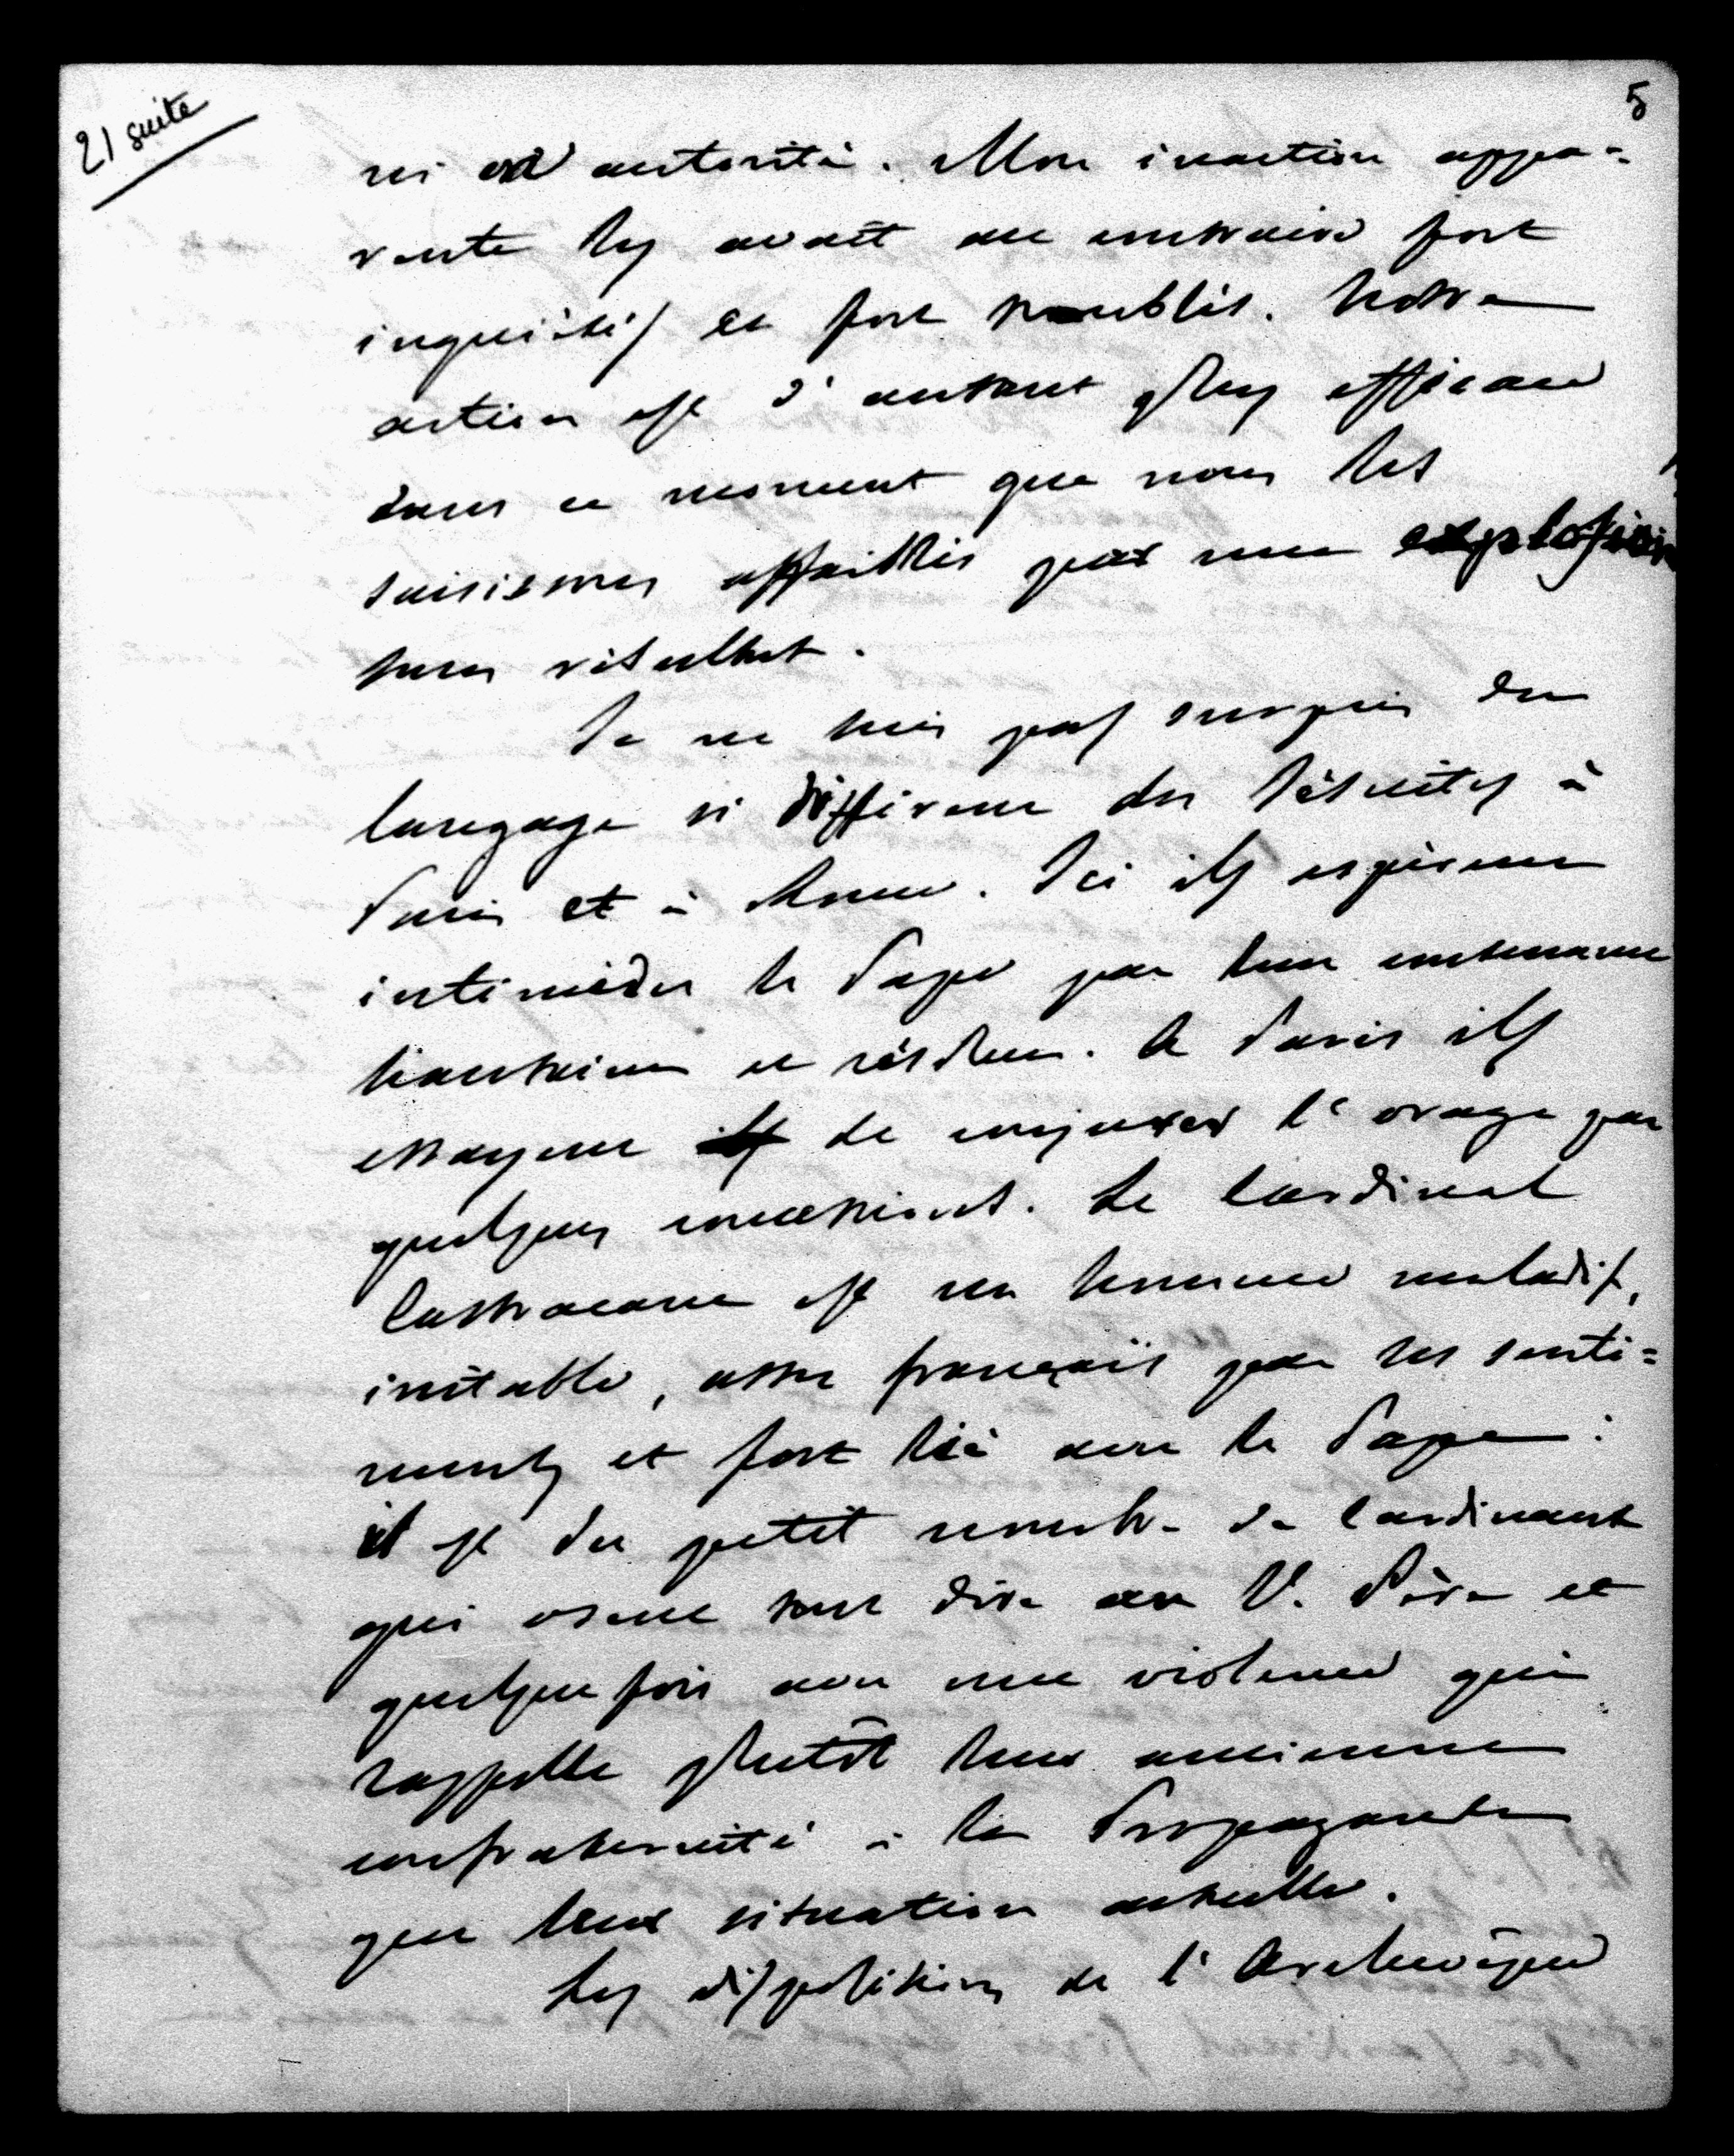 21 suite
5
ni od autorité. Mon inaction appa=
rente les avait au contraire fort
inquiétés et fort troublés. Notre
action est d'autant plus efficace
dans ce moment que nous les
saisissons affaiblis par une explosion
sans résultat.
Je ne suis pas surpris du
langage si différent des Jésuites à
Paris et à Rome. Ici ils espèrent
intimider le Pape par leur contenance
hautaine et résolue. A Paris ils
essayent de conjurer l'orage par
quelques concessions. Le Cardinal
Castracane est un homme maladif,
irritable, assez français par ses senti=
ments et fort lié avec le Pape :
il est du petit nombre de Cardinaux
qui osent tout dire au V. Père et
quelquefois avec une violence qui
rappelle plutôt leur ancienne
confraternité à la Propagande
que leur situation actuelle.
Les dispositions de l'Archevêque